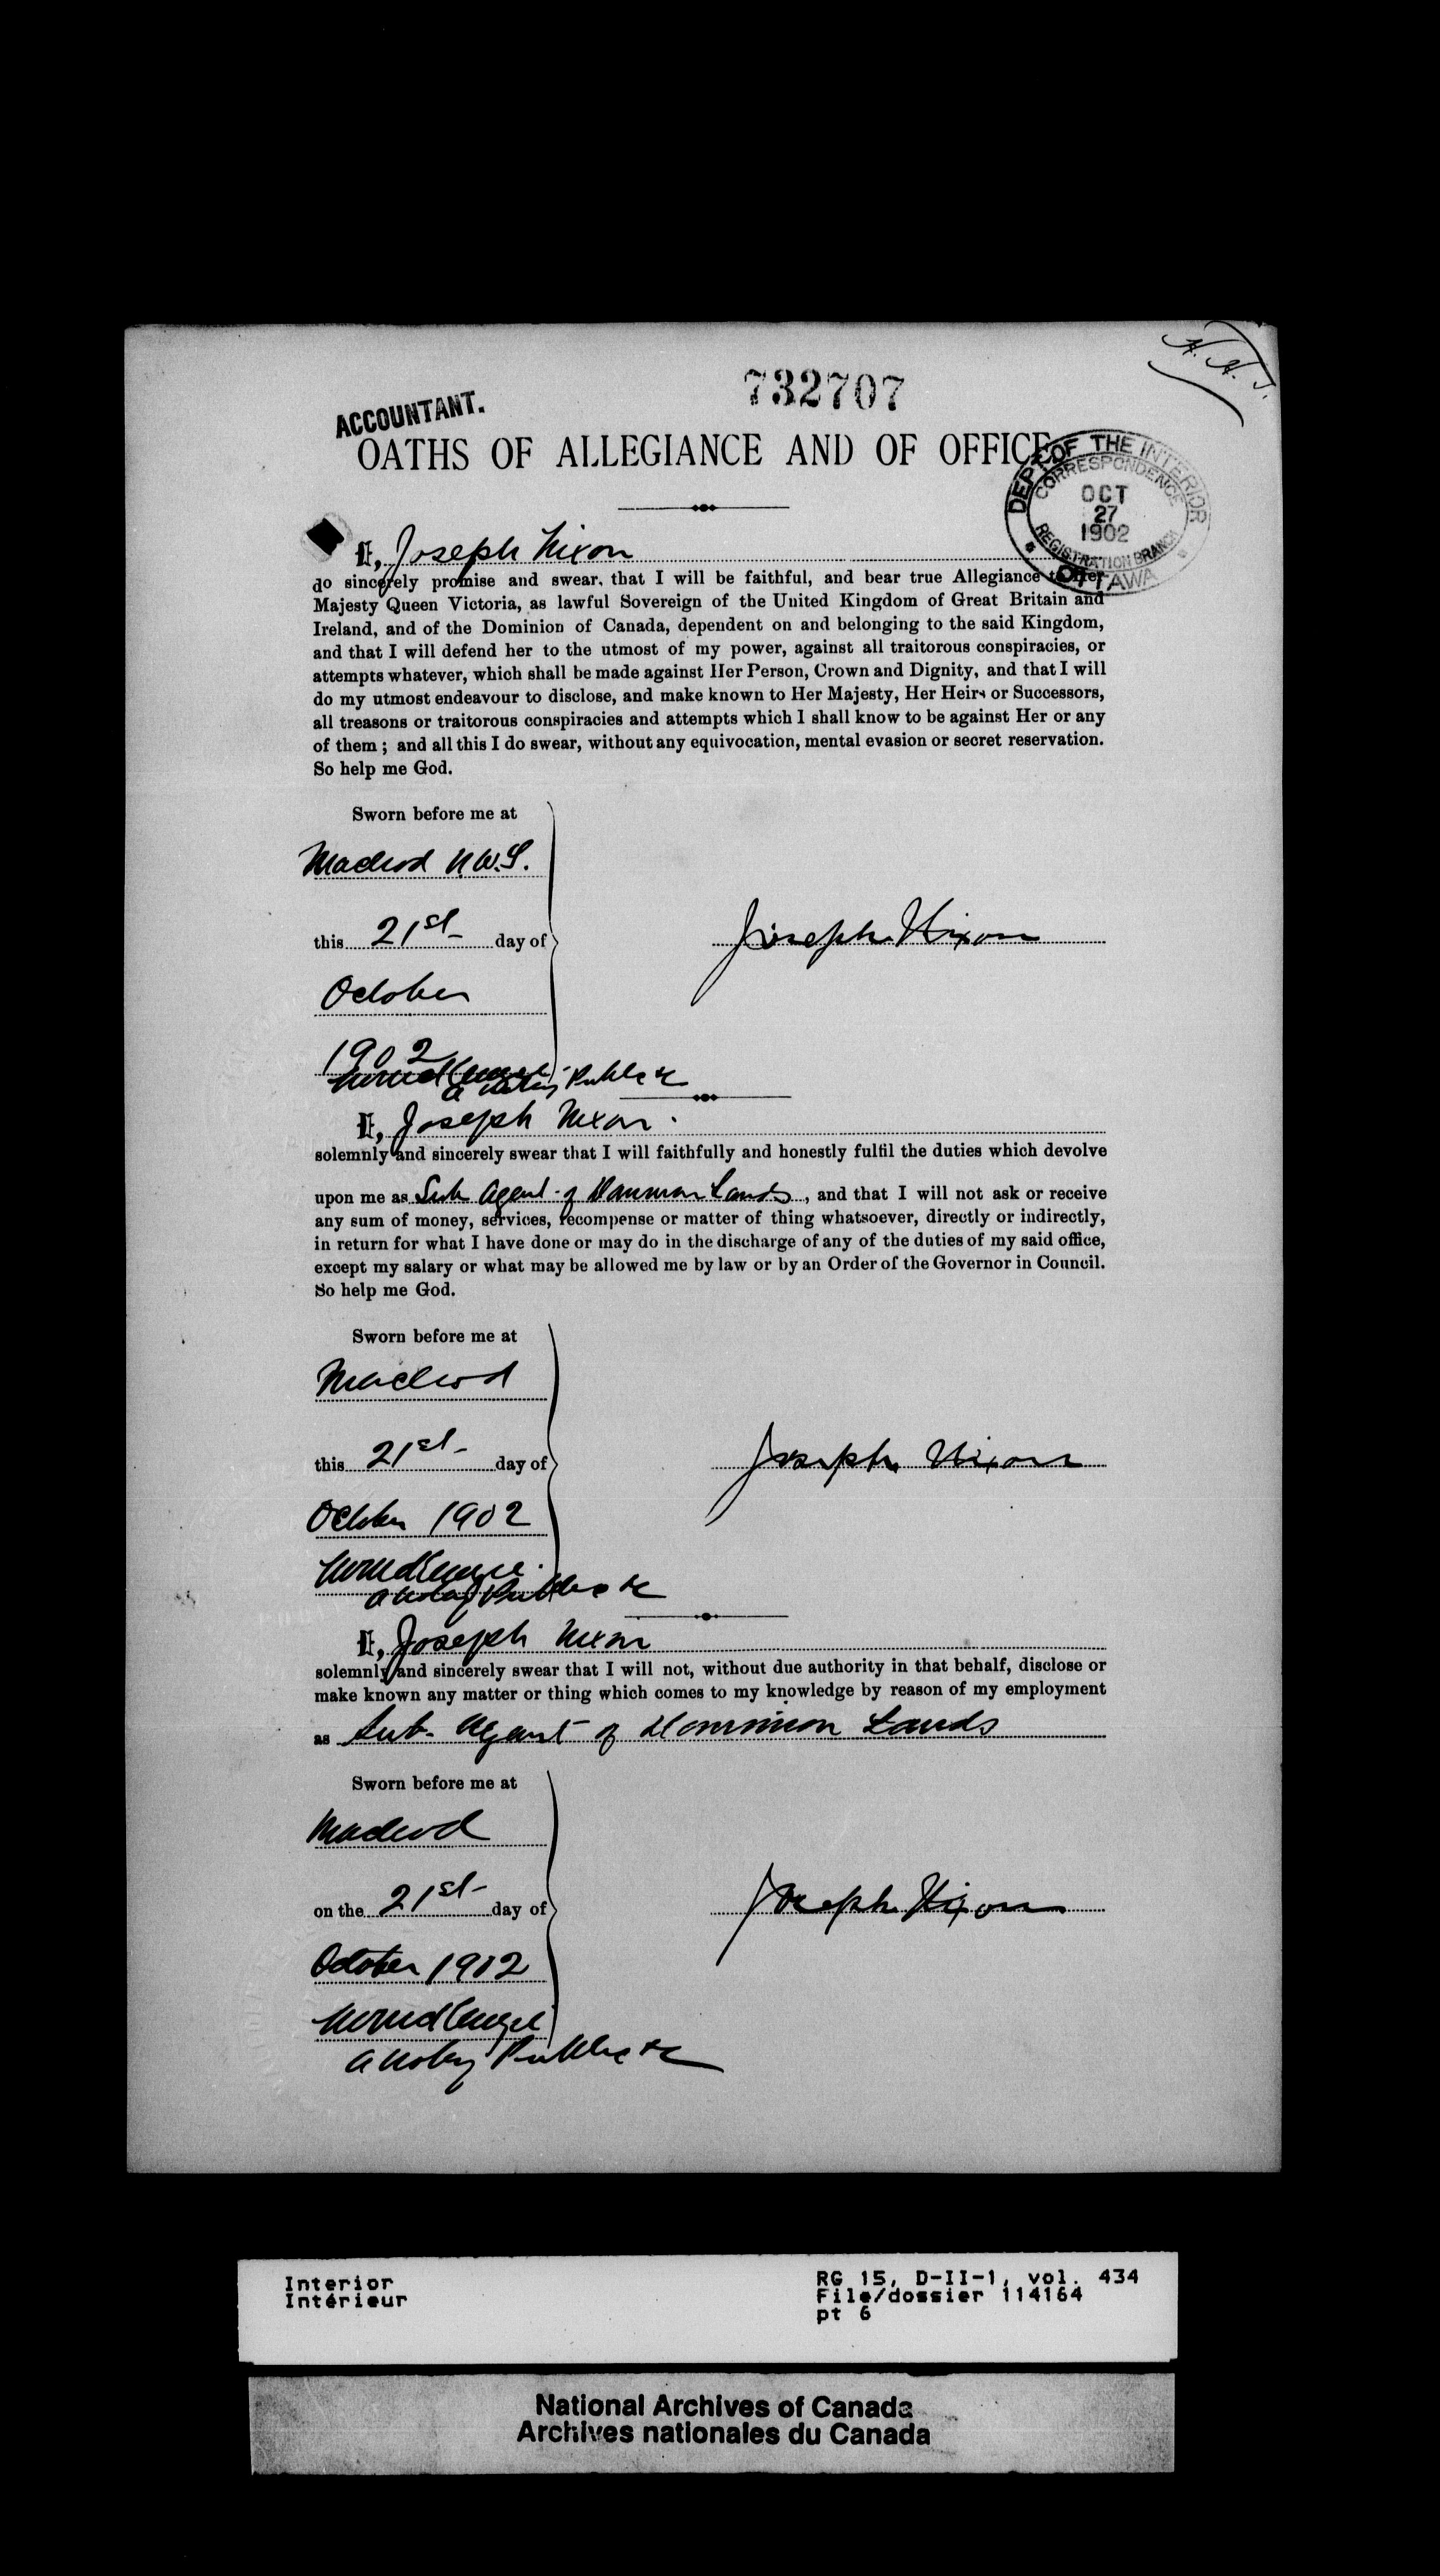 732707
ACCOUNTANT.
OATHS OF ALLEGIANCE AND OF OFFICE
DEPT OF THE INTERIOR
CORRESPONDENCE
OCT
27
1902
REGISTRATION BRANCH
OTTAWA
I, Joseph Nixon
do sincerely promise and swear, that I will be faithful, and bear true Allegiance to Her
Majesty Queen Victoria, as lawful Sovereign of the United Kingdom of Great Britain and
Ireland, and of the Dominion of Canada, dependent on and belonging to the said Kingdom,
and that I will defend her to the utmost of my power, against all traitorous conspiracies, or
attempts whatever, which shall be made against Her Person, Crown and Dignity, and that I will
do my utmost endeavour to disclose, and make known to Her Majesty, Her Heirs or Successors,
all treasons or traitorous conspiracies and attempts which I shall know to be against Her or any
of them ; and all this I do swear, without any equivocation, mental evasion or secret reservation.
So help me God.
Sworn before me at
Macleod N.W.T.
this 21st day of
Joseph Nixon
October
1902
a Notary Public &c
I, Joseph Nixon.
solemnly and sincerely swear that I will faithfully and honestly fulfil the duties which devolve
upon me as Sub Agent of Dominion Lands, and that I will not ask or receive
any sum of money, services, recompense or matter of thing whatsoever, directly or indirectly,
in return for what I have done or may do in the discharge of any of the duties of my said office,
except my salary or what may be allowed me by law or by an Order of the Governor in Council.
So help me God.
Sworn before me at
Macleod
this 21st day of
Joseph Nixon
October 1902
a Notary Public &c
I, Joseph Nixon
solemnly and sincerely swear that I will not, without due authority in that behalf, disclose or
make known any matter or thing which comes to my knowledge by reason of my employment
as Sub-Agent of Dominion Lands
Sworn before me at
Macleod
on the 21st day of
Joseph Nixon
October 1902
a Notary Public &c
Interior
Intérieur
RG 15, D-II-1, vol. 434
File/dossier 114164
pt 6
National Archives of Canada
Archives nationales du Canada